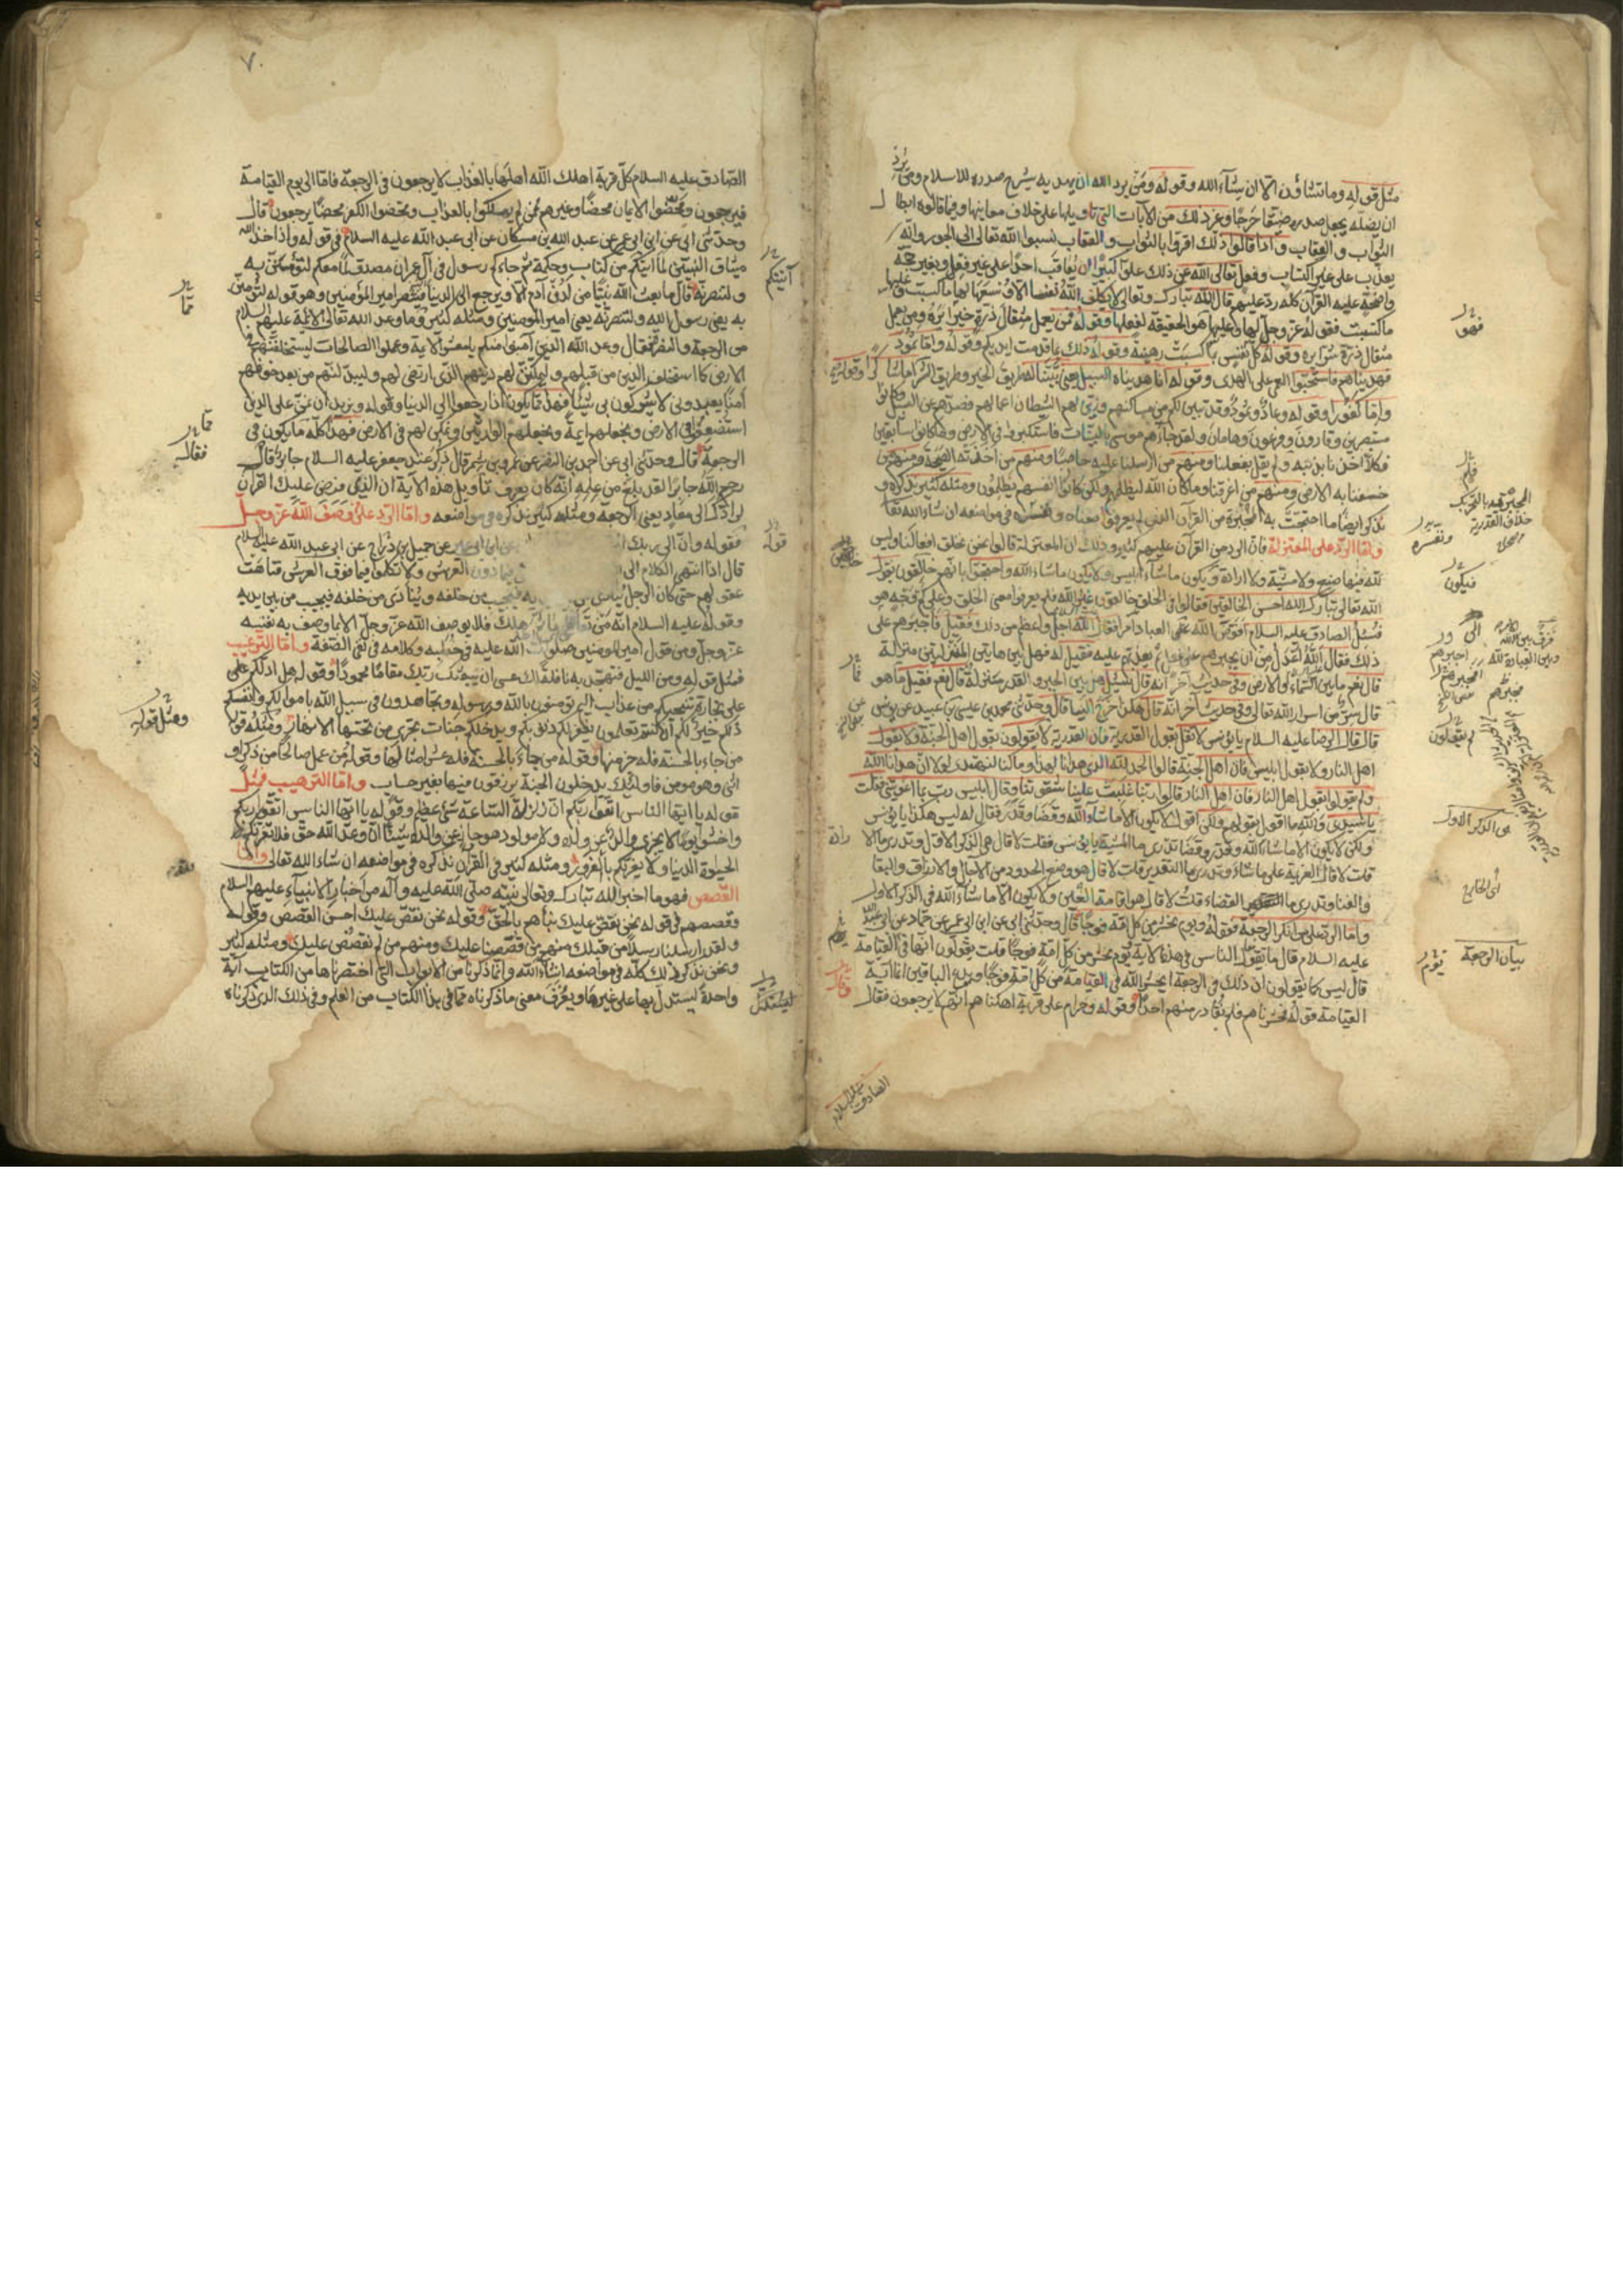 مثل قوله وما تشاؤن الا ان يشاء الله وقوله ومن يرد الله ان يهديه يشرح صدره للاسلام ومن يرد
ان يضله يجعل صدره ضيقا حرجا وغير ذلك من الآيات التي تاويلها على خلاف معانيها وفيما قالوه ابطال
الثواب والعقاب واذا قالوا ذلك اقروا بالثواب والعقاب نسبوا الله تعالى الى الجور وانه
يعذب على غير اكتساب وفعل تعالى الله عن ذلك علوا كبيرا ان يعاقب احدا على غير فعل وبغير حجة
واضحة عليه القرآن كله رد عليهم قال الله تبارك وتعالى لا يكلف الله نفسا الا وسعها لها ما كسبت وعليها
ما اكتسبت فقوله عز وجل لها وعليها هو الحقيقة لفعلها وقوله فمن يعمل مثقال ذرة خيرا يره ومن يعمل
مثقال ذرة شرا يره وقوله كل نفس بما كسبت رهينة وقوله ذلك بما قدمت ايديكم وقوله واما ثمود
فهديناهم فاستحبوا العمى على الهدى وقوله انا هديناه السبيل يعني بينا له طريق الخير وطريق الشر اما شاكرا
واما كفورا وقوله وعادا وثمود وقد تبين لكم من مساكنهم وزين لهم الشيطان اعمالهم فصدهم عن السبيل وكانوا
مستبصرين وقارون وفرعون وهامان ولقد جاءهم موسى بالبينات فاستكبروا في الارض وما كانوا سابقين
فكلا اخذنا بذنبه ولم يقل بفعلنا ومنهم من ارسلنا عليه حاصبا ومنهم من اخذته الصيحة ومنهم من
خسفنا به الارض ومنهم من اغرقنا وما كان الله ليظلمهم ولكن كانوا انفسهم يظلمون ومثله كثير نذكره و
نذكر ايضا ما احتجت به المجبرة من القرآن الذي لم يعرفوا معناه وتفسيره في مواضعه ان شاء الله تعا
واما الرد على المعتزلة فان الرد من القرآن عليهم كثير وذلك ان المعتزلة قالوا نحن نخلق افعالنا وليس
لله فيها صنع ولا مشية ولا ارادة ويكون ما شاء ابليس ولا يكون ما شاء الله واحتجوا بانهم خالقون بقول
الله تعالى تبارك الله احسن الخالقين فقالوا في الخلق خالقون غير الله فلم يعرفوا معنى الخلق وعلى كم وجه هو
فسئل الصادق عليه السلام افوض الله على العباد امرا فقال الله اجل واعظم من ذلك فقيل فاجبرهم على
ذلك فقال الله اعدل من ان يجبرهم على فعل ثم يعذبهم عليه فقيل له فهل بين هاتين المنزلتين منزلة
قال نعم ما بين السماء والارض وفي حديث آخر انه قال سئل هل بين الجبر والقدر منزلة قال نعم فقيل ما هو
قال سر من اسرار الله تعالى وفي حديث آخر انه قال هكذا خرج الينا قال وحدثني محمد بن عيسى بن عبيد عن يونس
قال قال الرضا عليه السلام يا يونس لا تقل بقول القدرية فان القدرية لا يقولون بقول اهل الجنة ولا بقول
اهل النار ولا بقول ابليس فان اهل الجنة قالوا الحمد لله الذي هدانا لهذا وما كنا لنهتدي لولا ان هدانا الله
ولم يقولوا بقول اهل النار فان اهل النار قالوا ربنا غلبت علينا شقوتنا وقال ابليس رب بما اغويتني فقلت
يا سيدي والله ما اقول بقولهم ولكني اقول لا يكون الا ما شاء الله وقضا وقدر فقال له ليس هكذا يا يونس
ولكن لا يكون الا ما شاء الله وقدر وقضا تدري ما المشية يا يونس فقلت لا قال هي الذكر الاول وتدري ما الا
قلت لا قال العزيمة على ما شاء وتدري ما التقدير قلت لا قال هو وضع الحدود من الآجال والارزاق والبقا
والفنا وتدري ما القضاء قلت لا قال هو اقامة العين ولا يكون الا ما شاء الله في الذكر الاول
واما الرد على من انكر الرجعة فقوله ويوم نحشر من كل امة فوجا قال وحدثني ابي عن ابن ابي عمير عن حماد عن ابي عبد الله
عليه السلام قال ما يقول الناس في هذه الآية يوم نحشر من كل امة فوجا قلت يقولون انها في القيامة
قال ليس كما يقولون ان ذلك في الرجعة ايحشر الله في القيامة من كل امة فوجا ويدع الباقين انما آية
القيامة قوله وحشرناهم فلم نغادر منهم احدا وقوله وحرام على قرية اهلكناها انهم لا يرجعون فقال
الصادق عليه السلام
فهو
فلم
ونفسره
فيكون
لم يقولون
هي الذكر الاول
اي الخارج
بيان الرجعة
تقوم
٧٠
الصادق عليه السلام كل قرية اهلك الله اهلها بالعذاب لا يرجعون في الرجعة فاما الى يوم القيامة
فيرجعون ومحضوا الايمان محضا وغيرهم ممن لم يهلكوا بالعذاب ومحضوا الكفر محضا يرجعون قال
وحدثني ابي عن ابن ابي عمير عن عبد الله بن مسكان عن ابي عبد الله عليه السلام في قوله واذ اخذ الله
ميثاق النبيين لما آتيتكم من كتاب وحكمة ثم جاءكم رسول في آل عمران مصدق لما معكم لتؤمنن به
ولتنصرنه قال ما بعث الله نبيا من لدن آدم الا ويرجع الى الدنيا فينصر امير المؤمنين وهو قوله لتؤمنن
به يعني رسول الله ولتنصرنه يعني امير المؤمنين ومثله كثير وما وعد الله تعالى الائمة عليهم السلام
من الرجعة والنصر فقال وعد الله الذين آمنوا منكم يا معشر الائمة وعملوا الصالحات ليستخلفنهم في
الارض كما استخلف الذين من قبلهم وليمكنن لهم دينهم الذي ارتضى لهم وليبدلنهم من بعد خوفهم
امنا يعبدونني لا يشركون بي شيئا فهذا مما يكون اذا رجعوا الى الدنيا وقوله ونريد ان نمن على الذين
استضعفوا في الارض ونجعلهم ائمة ونجعلهم الوارثين ونمكن لهم في الارض فهذا كله مما يكون في
الرجعة قال وحدثني ابي عن احمد بن النضر عن عمرو بن شمر قال ذكر عند جعفر عليه السلام جابر فقال
رحم الله جابرا لقد بلغ من علمه انه كان يعرف تاويل هذه الآية ان الذي فرض عليك القرآن
لرادك الى معاد يعني الرجعة ومثله كثير نذكره في مواضعه واما الرد على من وصف الله عز وجل
فقوله وان الى ربك عن ابن ابي عمير عن جميل بن دراج عن ابي عبد الله عليه السلام
قال اذا انتهى الكلام الى فيما دون العرش ولا تكلموا فيما فوق العرش فتاهت
عقولهم حتى كان الرجل ينادى فيجيب من خلفه وينادى من خلفه فيجيب من بين يديه
وقوله عليه السلام انه من تعاطى هلك فلا يوصف الله عز وجل الا بما وصف به نفسه
عز وجل ومن قول امير المؤمنين صلوات الله عليه في خطبه وكلامه في نفي الصفة واما الترغيب
فمثل قوله ومن الليل فتهجد به نافلة لك عسى ان يبعثك ربك مقاما محمودا وقوله هل ادلكم على
على تجارة تنجيكم من عذاب اليم تؤمنون بالله ورسوله وتجاهدون في سبيل الله باموالكم وانفسكم
ذلكم خير لكم ان كنتم تعلمون يغفر لكم ذنوبكم ويدخلكم جنات تجري من تحتها الانهار ومثله قوله
من جاء بالحسنة فله خير منها وقوله من جاء بالحسنة فله عشر امثالها وقوله من عمل صالحا من ذكر او
انثى وهو مؤمن فاولئك يدخلون الجنة يرزقون فيها بغير حساب واما الترهيب فمثل
قوله يا ايها الناس اتقوا ربكم ان زلزلة الساعة شئ عظيم وقوله يا ايها الناس اتقوا ربكم
واخشوا يوما لا يجزي والد عن ولده ولا مولود هو جاز عن والده شيئا ان وعد الله حق فلا تغرنكم
الحيوة الدنيا ولا يغرنكم بالله الغرور ومثله كثير في القرآن نذكره في مواضعه ان شاء الله تعالى واما
القصص فهو ما اخبر الله تبارك وتعالى نبيه صلى الله عليه وآله من اخبار الانبياء عليهم السلام
وقصصهم في قوله نحن نقص عليك نبأهم بالحق وقوله نحن نقص عليك احسن القصص وقوله
ولقد ارسلنا رسلا من قبلك منهم من قصصنا عليك ومنهم من لم نقصص عليك ومثله كثير
ونحن نذكر ذلك كله في مواضعه انشاء الله وانما ذكرنا من الابواب التي اختصرناها من الكتاب آية
واحدة ليستدل بها على غيرها ويعرف معنى ما ذكرناه مما في هذا الكتاب من العلم وفي ذلك الذي ذكرناه
آتيتكم
مما
فقال
قوله
ومثل قوله